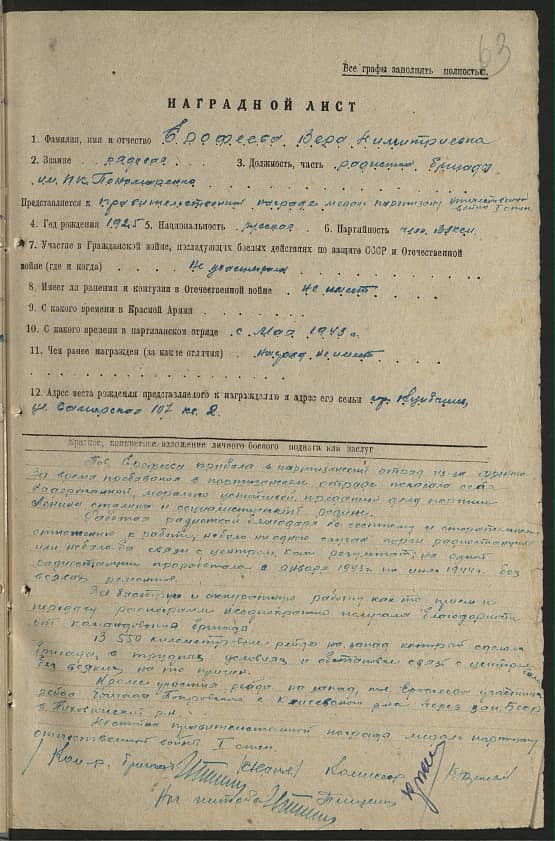 63
Все графы заполнять полностью.
НАГРАДНОЙ ЛИСТ
1. Фамилия, имя и отчество Ерофеева Вера Димитриевна
2. Звание рядовая 3. Должность, часть радистка бригады
им. П.К. Пономаренко
Представляется к правительственной награде медали партизану отечественной
войны I степ.
4. Год рождения 1925 5. Национальность русская 6. Партийность член ВЛКСМ
7. Участие в Гражданской войне, последующих боевых действиях по защите СССР и Отечественной
войне (где и когда) Не участвовала
8. Имеет ли ранения и контузии в Отечественной войне не имеет
9. С какого времени в Красной Армии
10. С какого времени в партизанском отряде с мая 1943 г.
11. Чем ранее награжден (за какие отличия) наград не имеет
12. Адрес места рождения представляемого к награждению и адрес его семьи гор. Куйбышев,
ул. Самарская 107 кв. 2.
Краткое, конкретное изложение личного боевого подвига или заслуг
Тов. Ерофеева прибыла в партизанский отряд из-за фронта.
За время пребывания в партизанском отряде показала себя
выдержанной, морально устойчивой, преданной делу партии
Ленина Сталина и социалистической родине.
Работая радисткой благодаря ее честному и старательному
отношению к работе, не было ни одного случая порчи радиостанции
или не было бы связи с центром, как результат: на одной
радиостанции проработала с января 1943 г. по июль 1944 г. без
всяких ремонтов.
За быструю и аккуратную работу как по прием и
передачу радиограмм неоднократно получала благодарности
от командования бригады.
В 550 километровом рейде на запад который сделала
бригада, в трудных условиях и обстановке связь с центром была
без всяких на то причин.
Кроме участия рейда на запад, тов. Ерофеева участница
рейда через зап. БССР
в р-н.
Достойна правительственной награды медаль партизану
отечественной войны I степ.
Ком-р бригады Комиссар
Нач штаба